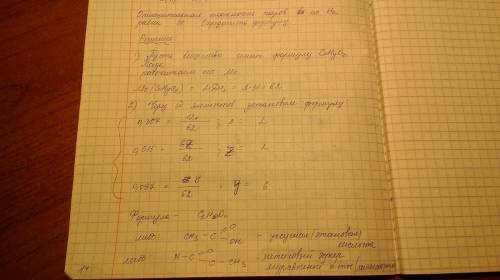 Относительная плотность паров в-ва по H₂
равна 31. Определить формулу
Решение
1) Пусть вещество имеет формулу CxHyOz
Тогда
рассчитаем его Mr.
Mr (CxHyOz) = 2·DH₂ = 2·31 = 62
2) Через ω элементов установим формулу
0,387 = 12x/62 ; x = 2
= 62 ; z = 2
0,097 = y/62 ; y = 6
Формула - C₂H₆O₂
либо: CH₃ - C O OH - уксусная (этановая)
кислота
либо H - C O O - CH₃ - метиловый эфир
муравьиной к-ты
14